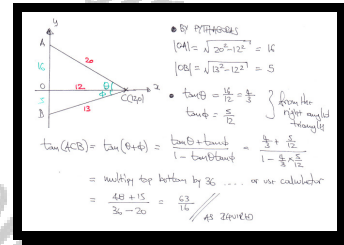 y
A
20
16
O
12
θ
φ
C(12,0)
x
5
13
B
• BY PYTHAGORAS
|OA| = √20²-12² = 16
|OB| = √13²-12² = 5
• tanθ = 16/12 = 4/3
tanφ = 5/12
} from the right angled triangles
tan(ACB) = tan(θ+φ) = (tanθ + tanφ)/(1 - tanθtanφ) = (4/3 + 5/12)/(1 - 4/3 × 5/12)
= multiply top bottom by 36 ..... or use calculator
= (48 + 15)/(36 - 20) = 63/16
AS REQUIRED